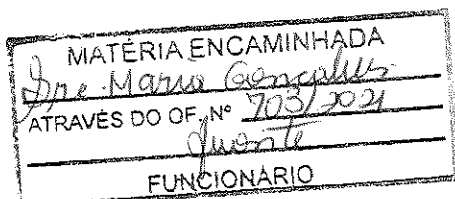 MATÉRIA ENCAMINHADA
Gonçalves
ATRAVÉS DO OF. Nº 703/2021
FUNCIONÁRIO